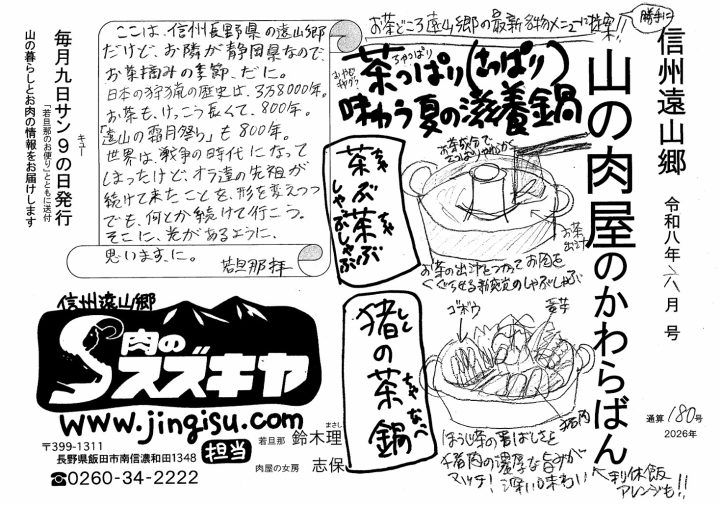 信州遠山郷
令和八年 六月 号
山の肉屋のかわらばん
通算 180号
2026年
お茶どころ遠山郷の最新名物メニューに提案!!
勝手に
茶っぱり(さっぱり)
ちゃっぱり
おやじギャグ?
味わう夏の滋養鍋
茶ぶ茶ぶ
ちゃ
ちゃ
しゃぶしゃぶ
お茶
出汁
お茶の出汁をつかってお肉を
くぐらせる新感覚のしゃぶしゃぶ
猪の茶鍋
しし
ちゃ
なべ
ゴボウ
猪肉
ほうじ茶の香ばしさと
猪肉の濃厚な旨みが
マッチ!深い味わい
利休飯
アレンジも!!
ここは、信州長野県の遠山郷
だけど、お隣が静岡県なので、
お茶摘みの季節、だに。
日本の狩猟の歴史は、3万8000年。
お茶も、けっこう長くて、800年。
「遠山の霜月祭り」も800年。
世界は、戦争の時代になって
しまったけど、オラ達の先祖が
続けて来たことを、形を変えつつ
でも、何とか続けて行こう。
そこに、光があるように、
思いますに。
若旦那 拝
毎月九日サン9の日発行
キュー
「若旦那のお便り」とともに送付
山の暮らしとお肉の情報をお届けします
信州遠山郷
肉の
スズキヤ
www.jingisu.com
〒399-1311
長野県飯田市南信濃和田1348
☎0260-34-2222
担当
若旦那 鈴木理
まさし
肉屋の女房 志保